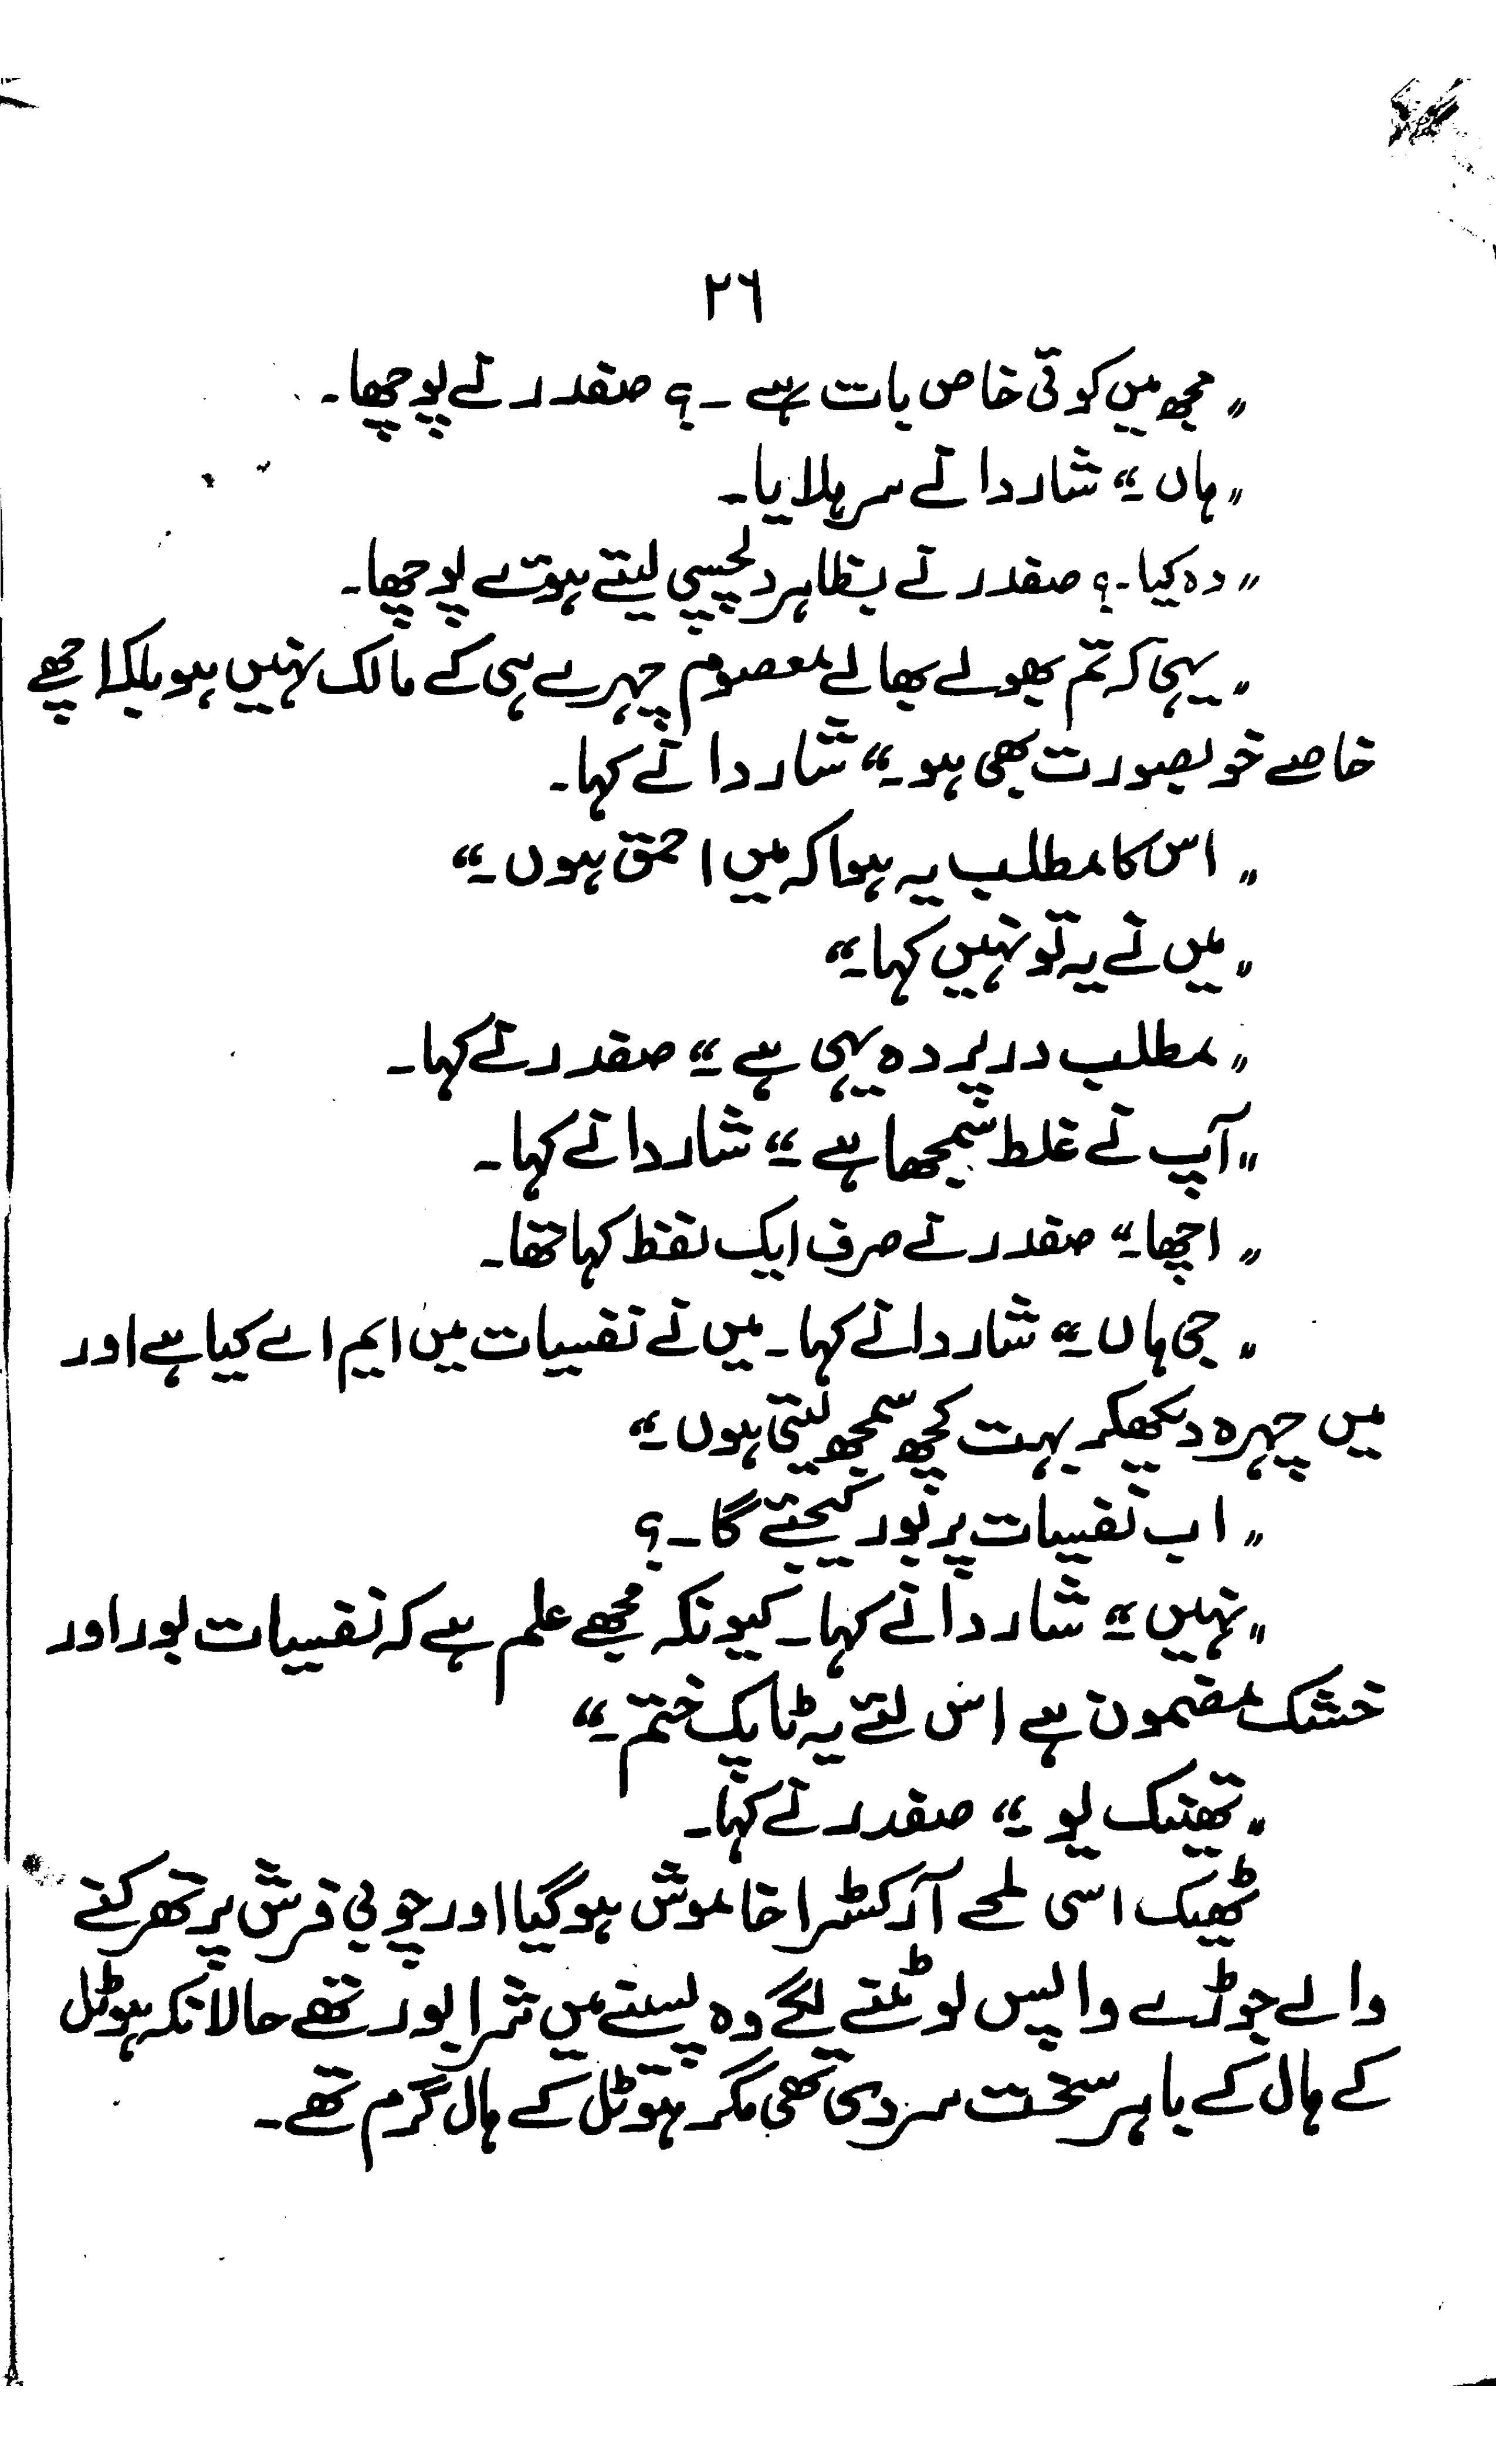 ۲۶
"مجھ میں کوئی خاص بات ہے ـ؟ صفدر نے پوچھا۔
"ہاں۔" شاردا نے سر ہلایا۔
"وہ کیا۔؟ صفدر نے بظاہر دلچسپی لیتے ہوئے پوچھا۔
"یہی کہ تم بھولے بھالے معصوم چہرے ہی کے مالک نہیں ہو بلکہ اچھے
خاصے خوبصورت بھی ہو۔" شاردا نے کہا۔
"اس کا مطلب یہ ہوا کہ میں احمق ہوں۔"
"میں نے یہ تو نہیں کہا۔"
"مطلب در پردہ یہی ہے۔" صفدر نے کہا۔
"آپ نے غلط سمجھا ہے۔" شاردا نے کہا۔
"اچھا۔" صفدر نے صرف ایک لفظ کہا تھا۔
"جی ہاں۔" شاردا نے کہا۔ میں نے نفسیات میں ایم اے کیا ہے اور
میں چہرہ دیکھکر بہت کچھ سمجھ لیتی ہوں۔"
"اب نفسیات پر بور کیجئے گا۔؟
"نہیں۔" شاردا نے کہا۔ کیونکہ مجھے علم ہے کہ نفسیات بور اور
خشک مضمون ہے اس لئے یہ ٹاپک ختم۔"
"تھینک یو۔" صفدر نے کہا۔
ٹھیک اسی لمحے آرکسٹرا خاموش ہو گیا اور چوبی فرش پر تھرکنے
والے جوڑے واپس لوٹنے لگے وہ پسینے میں شرابور تھے حالانکہ ہوٹل
کے ہال کے باہر سخت سردی تھی مگر ہوٹل کے ہال گرم تھے۔